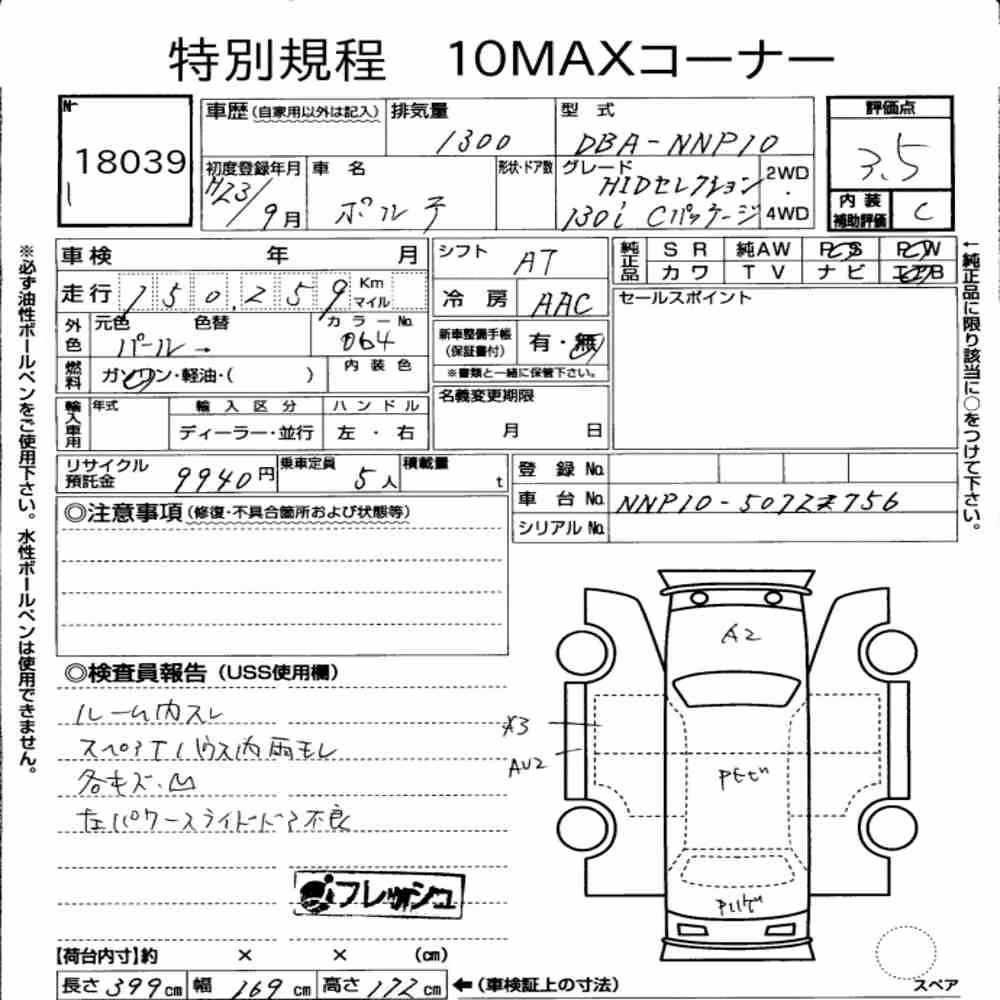 特別規程 10MAXコーナー
№
18039
車歴(自家用以外は記入) 排気量 1300
型式 DBA-NNP10
評価点
3.5
初度登録年月 H23/9月
車名 ポルテ
形状・ドア数
グレード HIDセレクション
130i Cパッケージ
2WD
・
4WD
内装
補助評価 C
※必ず油性ボールペンをご使用下さい。水性ボールペンは使用できません。
車検 年 月
走行 150,259 Km
マイル
外色 元色 パール→ 色替
カラーNo. 064
燃料 ガソリン・軽油・( )
内装色
輸入車用 年式
輸入区分 ディーラー・並行
ハンドル 左・右
シフト AT
冷房 AAC
新車整備手帳
(保証書付) 有・無
※書類と一緒に保管下さい。
名義変更期限
月 日
純正品 SR 純AW PS PW
カワ TV ナビ エアB
セールスポイント
←純正品に限り該当に○をつけて下さい。
リサイクル
預託金 9940円
乗車定員 5人
積載量 t
登録No.
車台No. NNP10-5072756
シリアルNo.
◎注意事項(修復・不具合箇所および状態等)
◎検査員報告(USS使用欄)
ルーム内スレ
スペアTハウス内雨モレ
各キズ、凹
左パワースライドドア不良
フレッシュ
A2
A3
AU2
Pモビ
【荷台内寸】約 × × (cm)
長さ399cm 幅169cm 高さ172cm ←(車検証上の寸法)
スペア